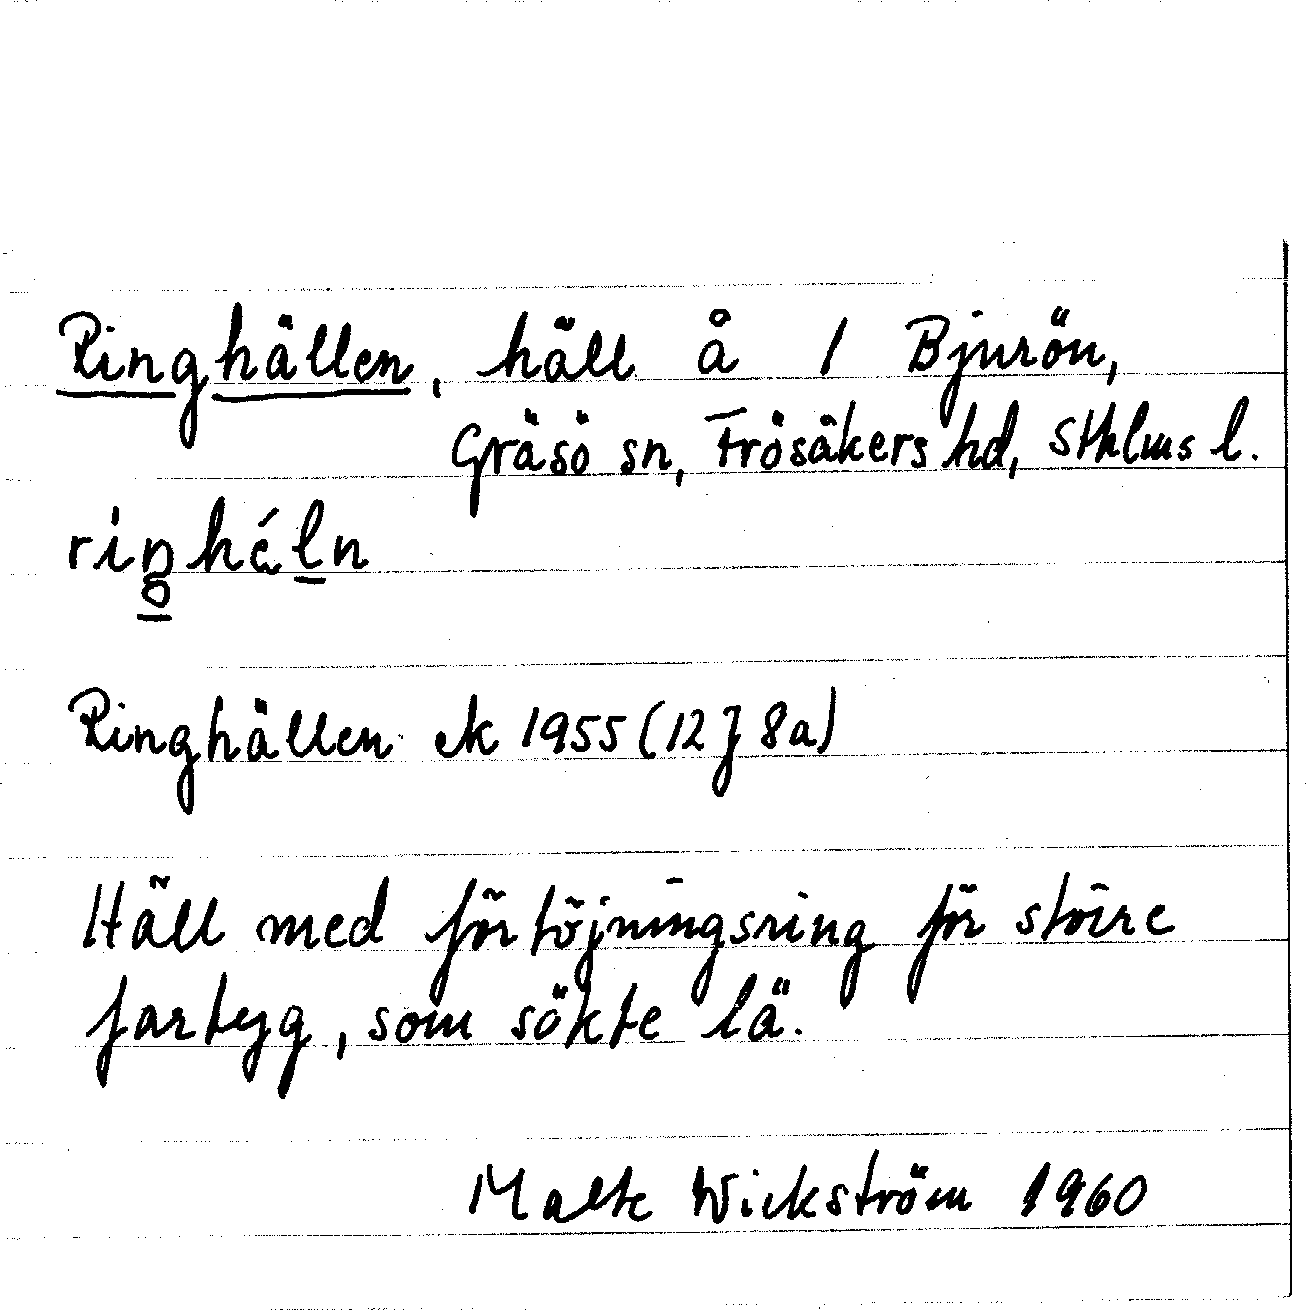 Ringhällen, häll å 1 Bjurön,
Gräsö sn, Frösåkers hd, Sthlms l.
Ringhällen ek 1955 (12J 8a)
Häll med förtöjningsring för större
fartyg, som sökte lä.
Malte Wickström 1960